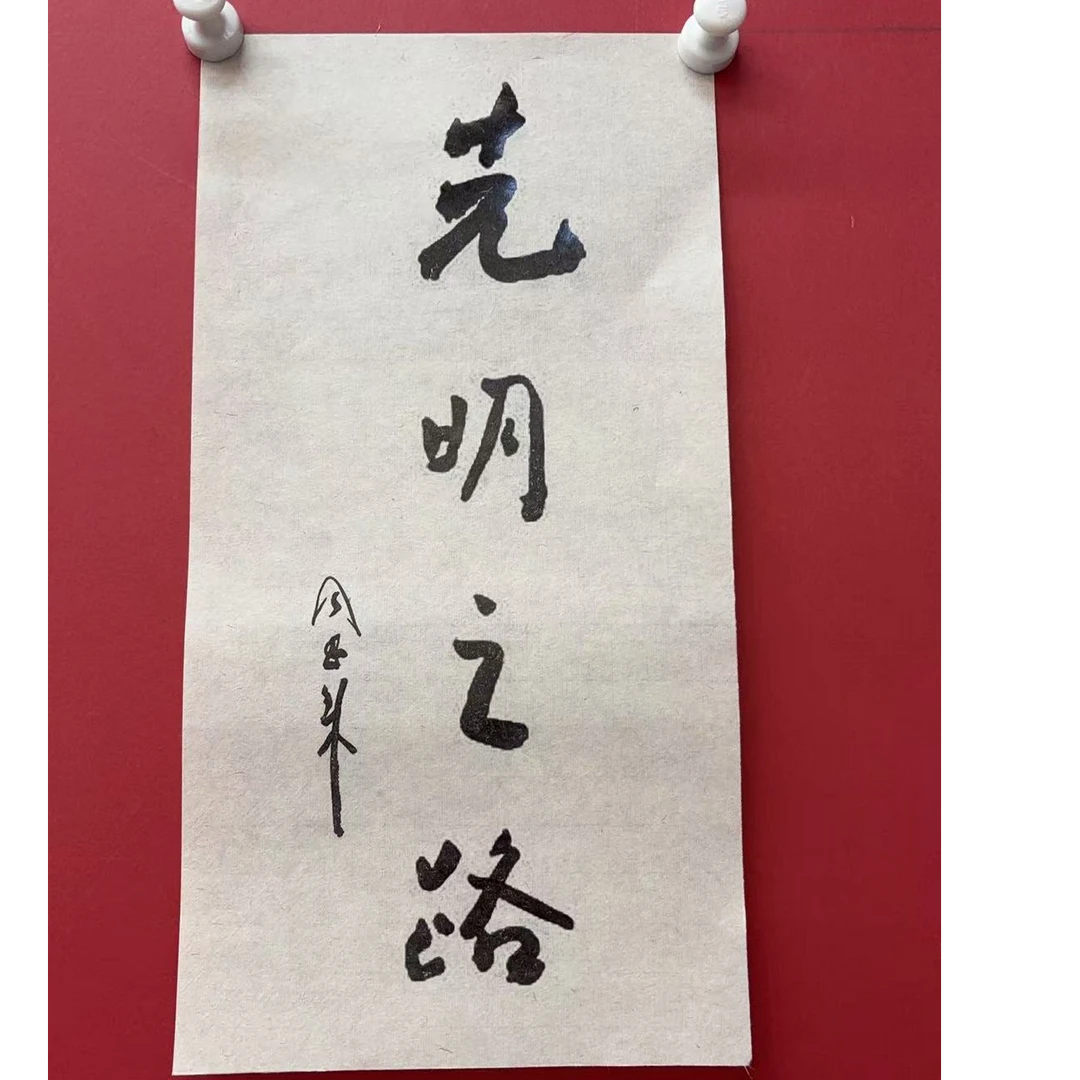 光明之路
周恩来